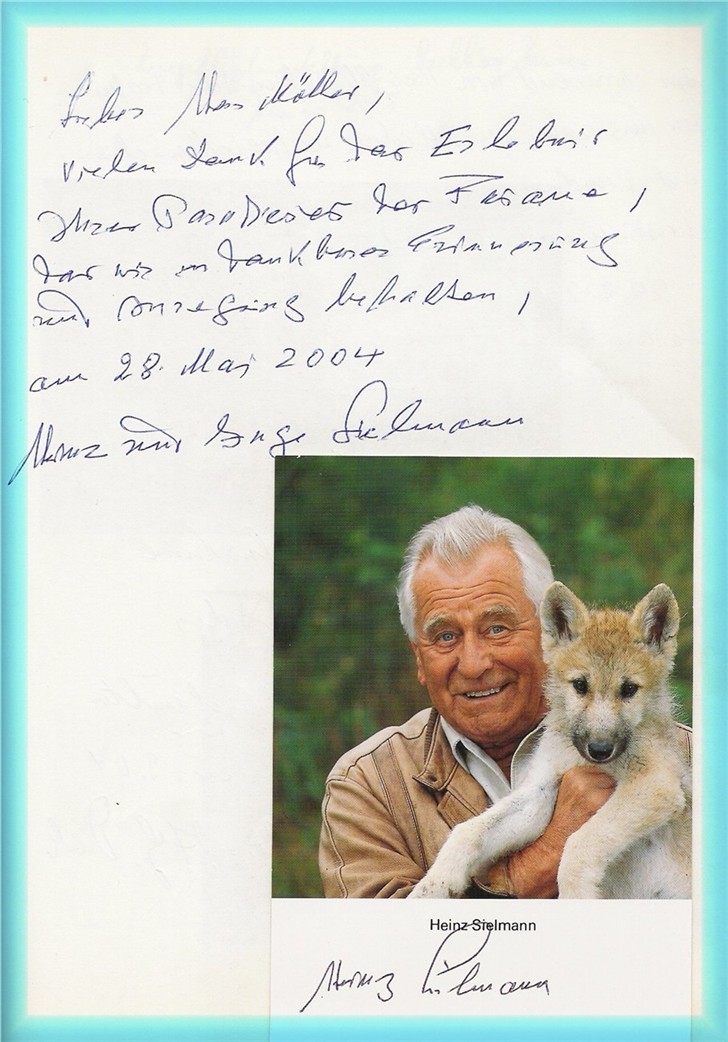 Lieber Herr Möller,
vielen Dank für das Erlebnis
Ihres Paradieses der Fasane,
das wir in dankbarer Erinnerung
und Anregung behalten,
am 28. Mai 2004
Heinz und Inge Sielmann
Heinz Sielmann
Heinz Sielmann